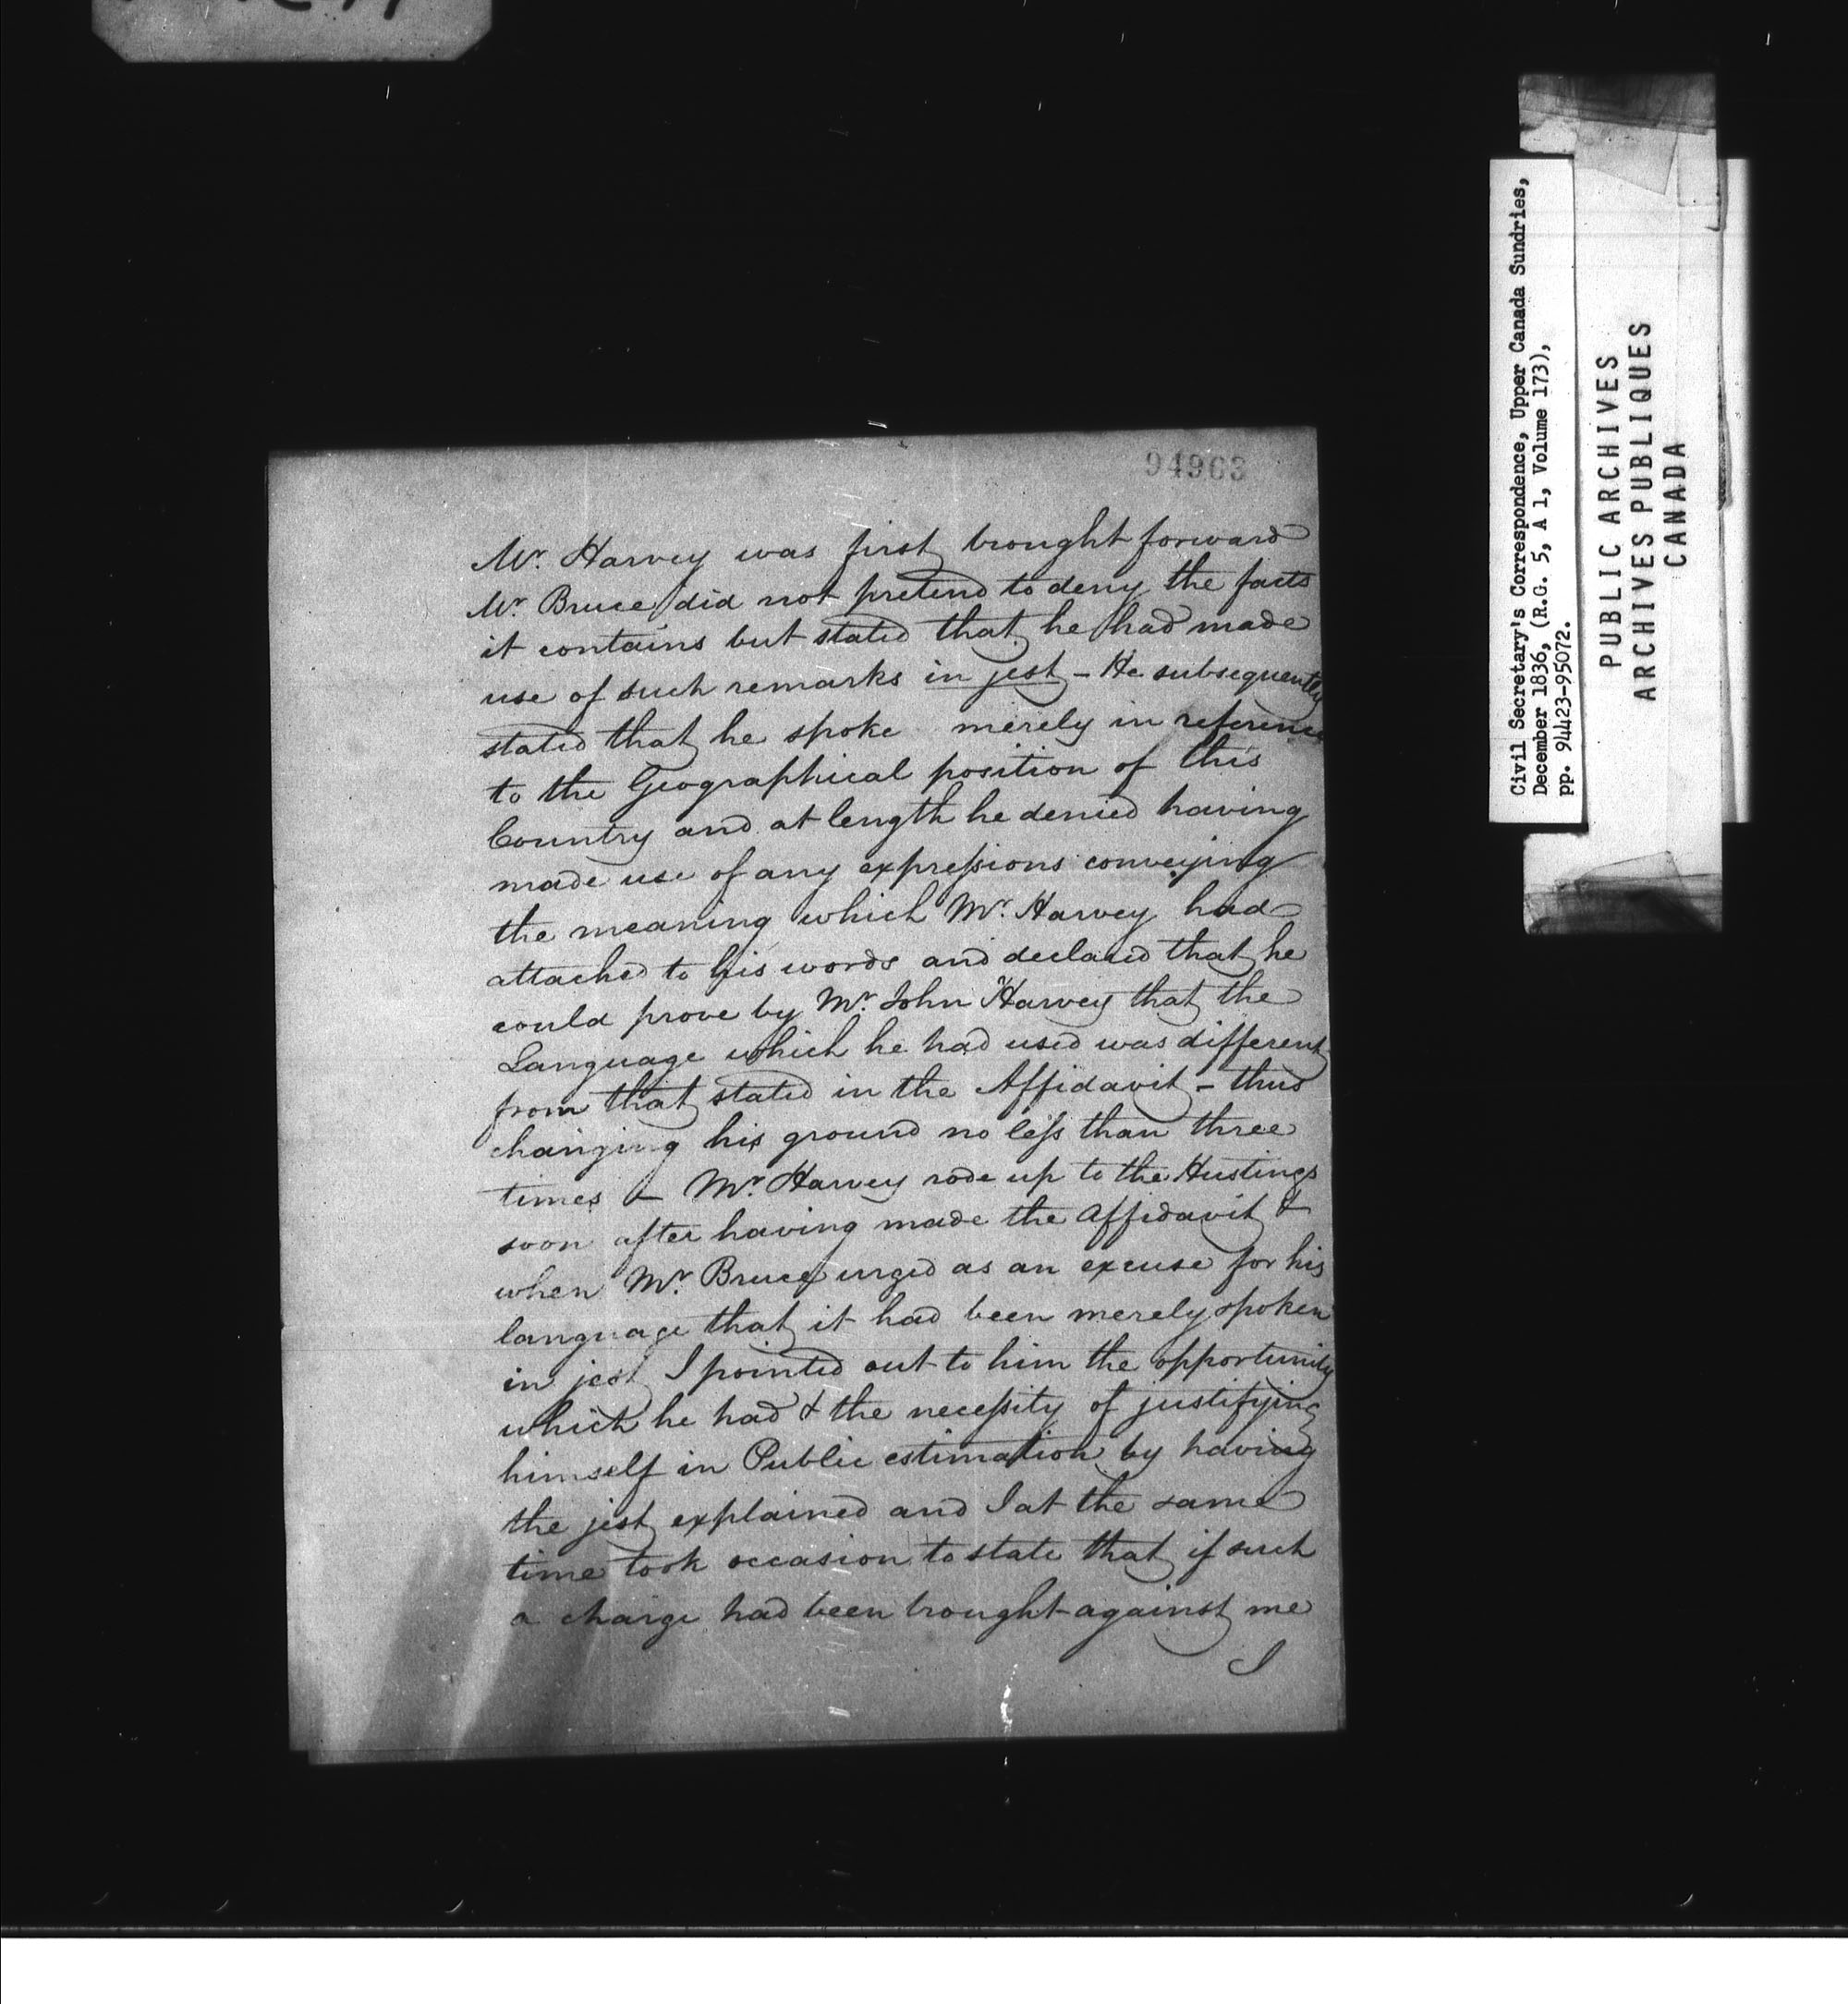 94963
Mr. Harvey was first brought forward
Mr. Bruce did not pretend to deny the facts
it contains but stated that he had made
use of such remarks in jest - He subsequently
stated that he spoke merely in reference
to the Geographical position of this
Country and at length he denied having
made use of any expressions conveying
the meaning which Mr. Harvey had
attached to his words and declared that he
could prove by Mr. John Harvey that the
Language which he had used was different
from that stated in the Affidavit - thus
changing his ground no less than three
times - Mr. Harvey rode up to the Hustings
soon after having made the affidavit &
when Mr. Bruce urged as an excuse for his
language that it had been merely spoken
in jest I pointed out to him the opportunity
which he had & the necessity of justifying
himself in Public estimation by having
the jest explained and I at the same
time took occasion to state that if such
a charge had been brought against me
I
Civil Secretary's Correspondence, Upper Canada Sundries,
December 1836, (R.G. 5, A 1, Volume 173),
pp. 94423-95072.
PUBLIC ARCHIVES
ARCHIVES PUBLIQUES
CANADA